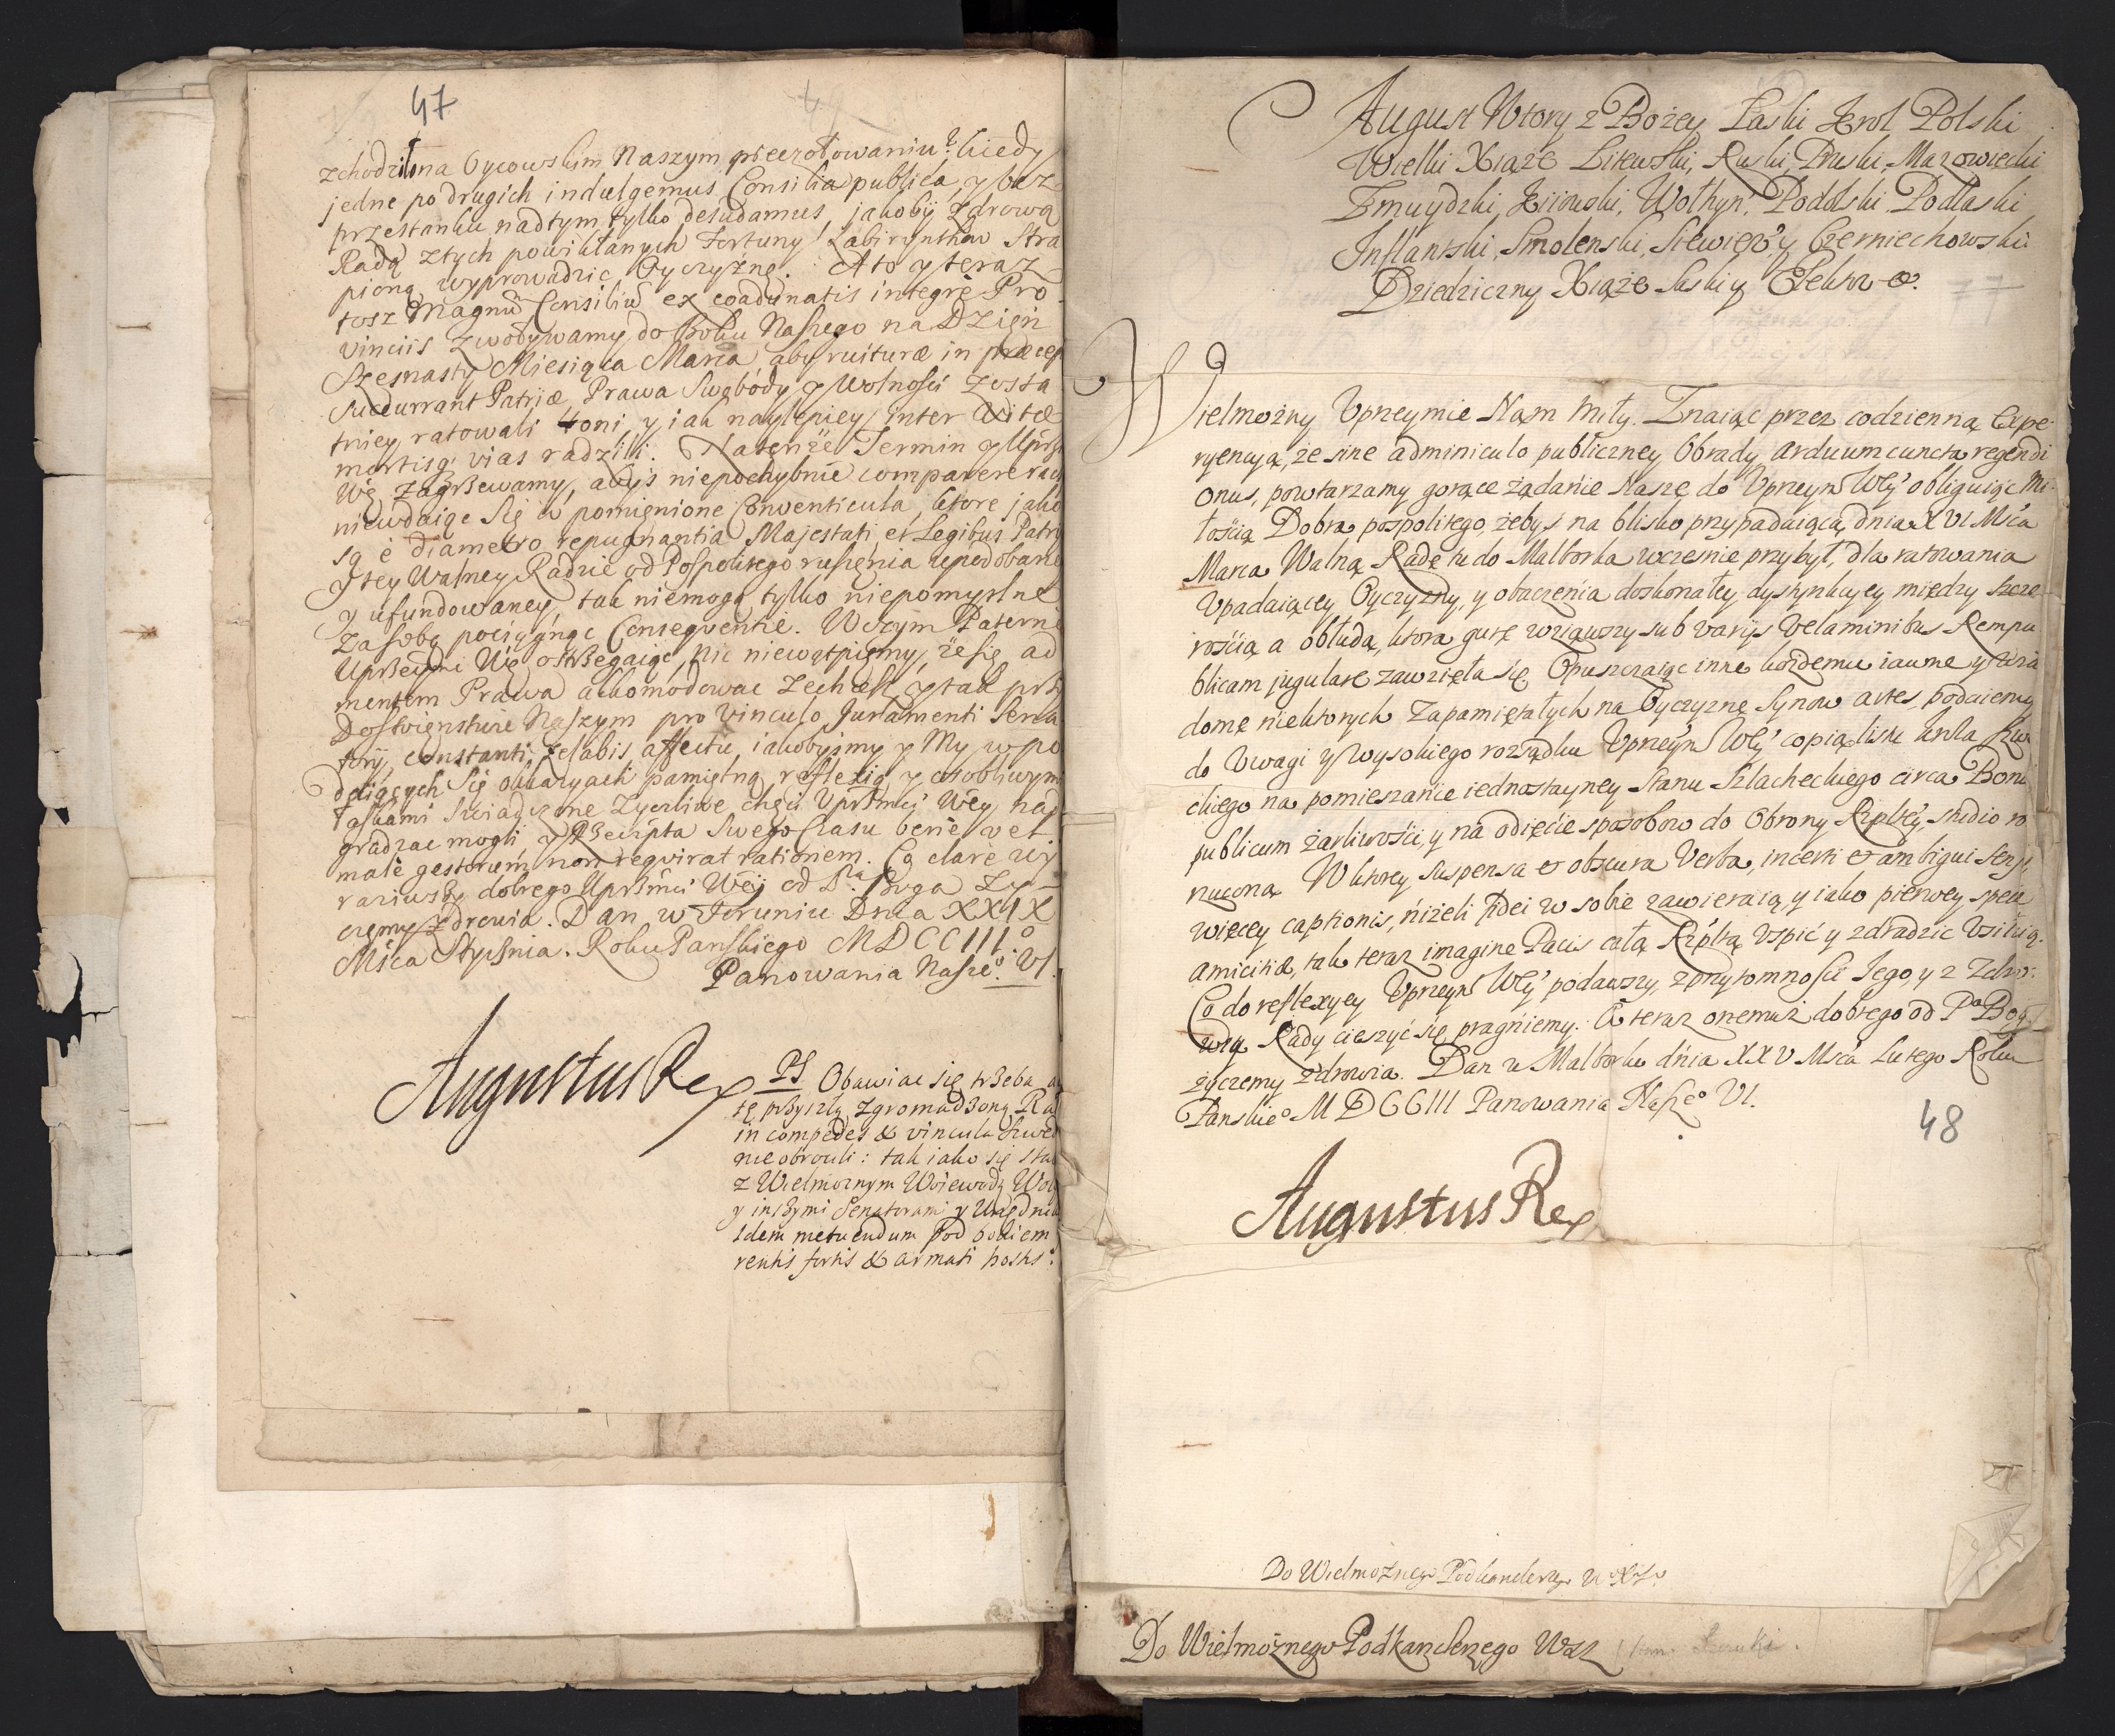 47
zchodziło na Oycowskim Naszym pieczołowaniu? kiedy
jedne po drugich indulgemus Consilia publica, y bez
przestanku nad tym tylko desudamus, jakoby zdrową
Radą z tych powikłanych fortuny Labirynthow Stra
pioną wyprowadzic Oyczyznę. A to y teraz
tosz Magnu Consiliu ex coadunatis integre Pro
vinciis zwoływamy do Boku Naszego na Dzień
Szesnasty Miesiąca Marca aby ruituræ in præcep
succurrant Patriæ, Prawa Swobody y Wolnosci zosta
tniey ratowali toni, y iak naylepiey inter vitæ
mortisq; vias radzili. Na tenże Termin y Uprz
Wę zagrzewamy, abyś niepochybnie comparere racz
niewdaiąc się w pomienione Conventicula, ktore jako
są è diametro repugnantia Majestati et Legibus Patry
y tey Walney Radzie od Pospolitego ruszenia upodobane
y ufundowaney, tak niemogą tylko niepomyslne
za sobą pociągnąc Consequentie. W czym Paterne
Uprzeymi Wę ostrzegaiąc, nic niewątpiemy, że się ad
mentem Prawa akkomodowac zechcesz, y tak przy
Dostoienstwie Naszym pro vinculo Juramenti Sena
torij, constanti zelabis affectu, iakobysmy y My w po
daiących się okazyach pamiętną reflexią y osobliwym
łaskami swiadczone życzliwe chęci Uprzmei Wey nad
gradzac mogli y Rzeczpta swego czasu bene vel
male gestorum non requirat rationem. Co clare wy
raziwszy dobrego Uprzmei Weij od Pa Boga ży-
czemy zdrowia. Dan w Toruniu Dnia XXIX
Msca Stycznia. Roku Panskiego MDCCIII.o
Panowania Naszeo. VI.
Augustus Rex
PS Obawiac się trzeba a
tę przyszłą zgromadzoną Ra
in compedes & vincula Szwed
nie obrocili: tak iako się sta
z Wielmoznym Woiewodą Woł
y inszymi Senatorami y Urzędnik
Idem metuendum pod bokiem
rentis fortis & armati hostis.
August Wtory z Bożey Łaski Krol Polski
Wielki Xiąże Litewski, Ruski, Pruski, Mazowiecki
Zmuydzki, Kijowski, Wołhyń. Podolski, Podlaski
Inflantski, Smolenski, Siewier. y Czerniechowski
Dziedziczny Xiąże Saski y Elektor &.
Wielmożny Uprzeymie Nam miły. Znaiąc przez codzienną Expe-
ryencyą, że sine adminiculo publiczney Obrady arduum cuncta regendi
onus, powtarzamy gorące żądanie Nasze do Uprzeym Wey obliguiąc Mi-
łoscią Dobra pospolitego, żebyś na blisko przypadaiącą dnia XVI Msca
Marca Walną Radę tu do Malborka wczesnie przybył, dla ratowania
Upadaiącey Oyczyzny, y obaczenia doskonałey dystynkcyey między szcze
rością a obłudą, ktora gurę wziąwszy sub variis Velaminibus Rempu
blicam jugulare zawzięła się. Opuszczaiąc inne każdemu iawne y wia
dome niektorych zapamiętałych na Oyczyznę Synow artes, podaiemy
do Uwagi y wysokiego rozsądku Uprzeym Wey copią listu Krola Szwe
ckiego na pomieszanie iednostayney Stanu Szlacheckiego circa Bonu
publicum żarliwości, y na odięcie sposobow do Obrony Rzpltey, studio ro
rzuconą. W ktorey suspensa & obscura Verba, incerti & ambigui sensus,
więcey captionis, niżeli fidei w sobie zawieraią, y iako pierwey specu
amicitiæ, tak teraz imagine Pacis całą Rzpltą uspić y zdradzic usiłuią.
Co do reflexyey Uprzeym Wey podawszy, z przytomności Iego, y z Zdro-
wią Rady cieszyć się pragniemy. A teraz onemuż dobrego od Pa Boga
życzemy zdrowia. Dan w Malborku dnia XXV Msca Lutego Roku
Panskieo MDCCIII Panowania Naszeo VI.
48
Augustus Rex
Do Wielmożnego Podkanclerzego W X L
Do Wielmożnego Podkanclerzego WXL